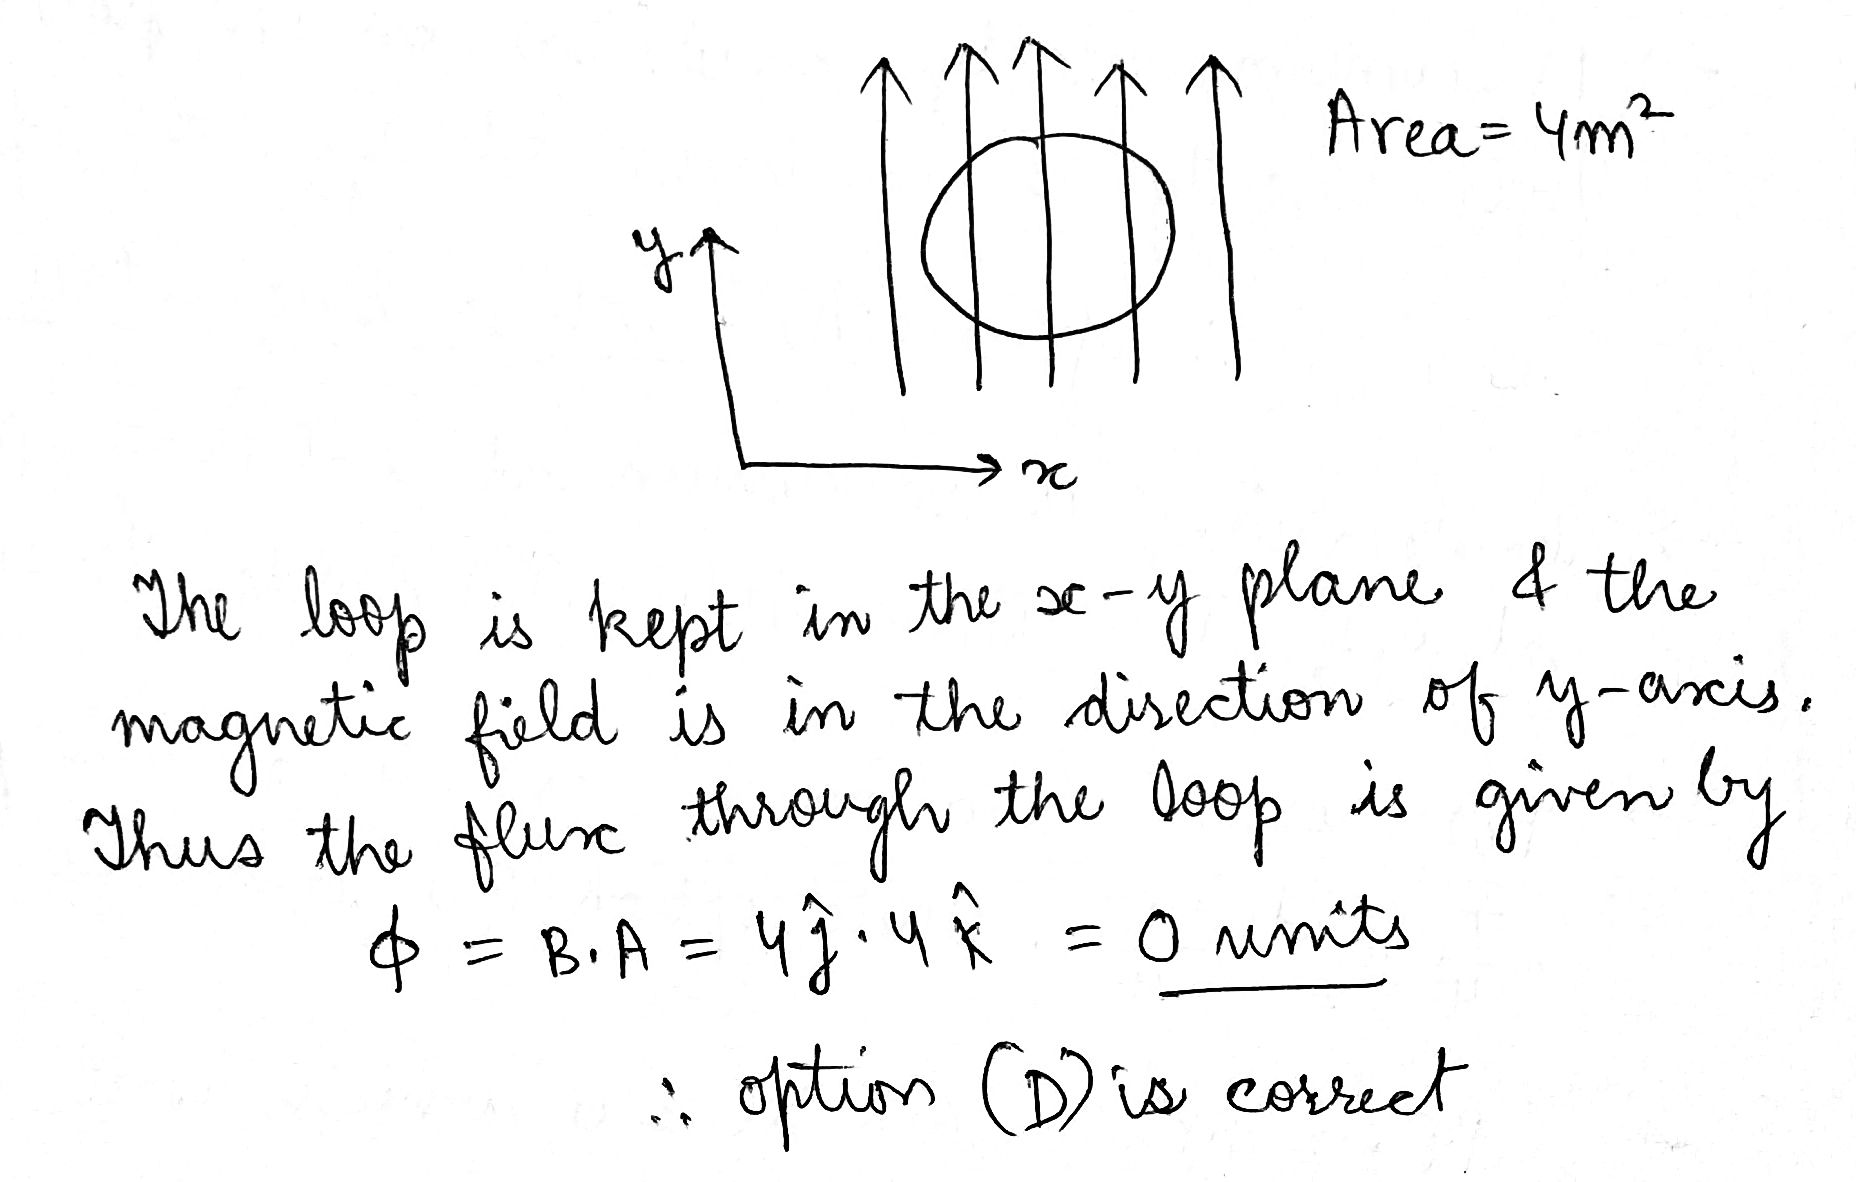 Area = 4m²
y
x
The loop is kept in the x-y plane & the
magnetic field is in the direction of y-axis.
Thus the flux through the loop is given by
ϕ = B.A = 4ĵ.4k̂ = 0 units
∴ option (D) is correct